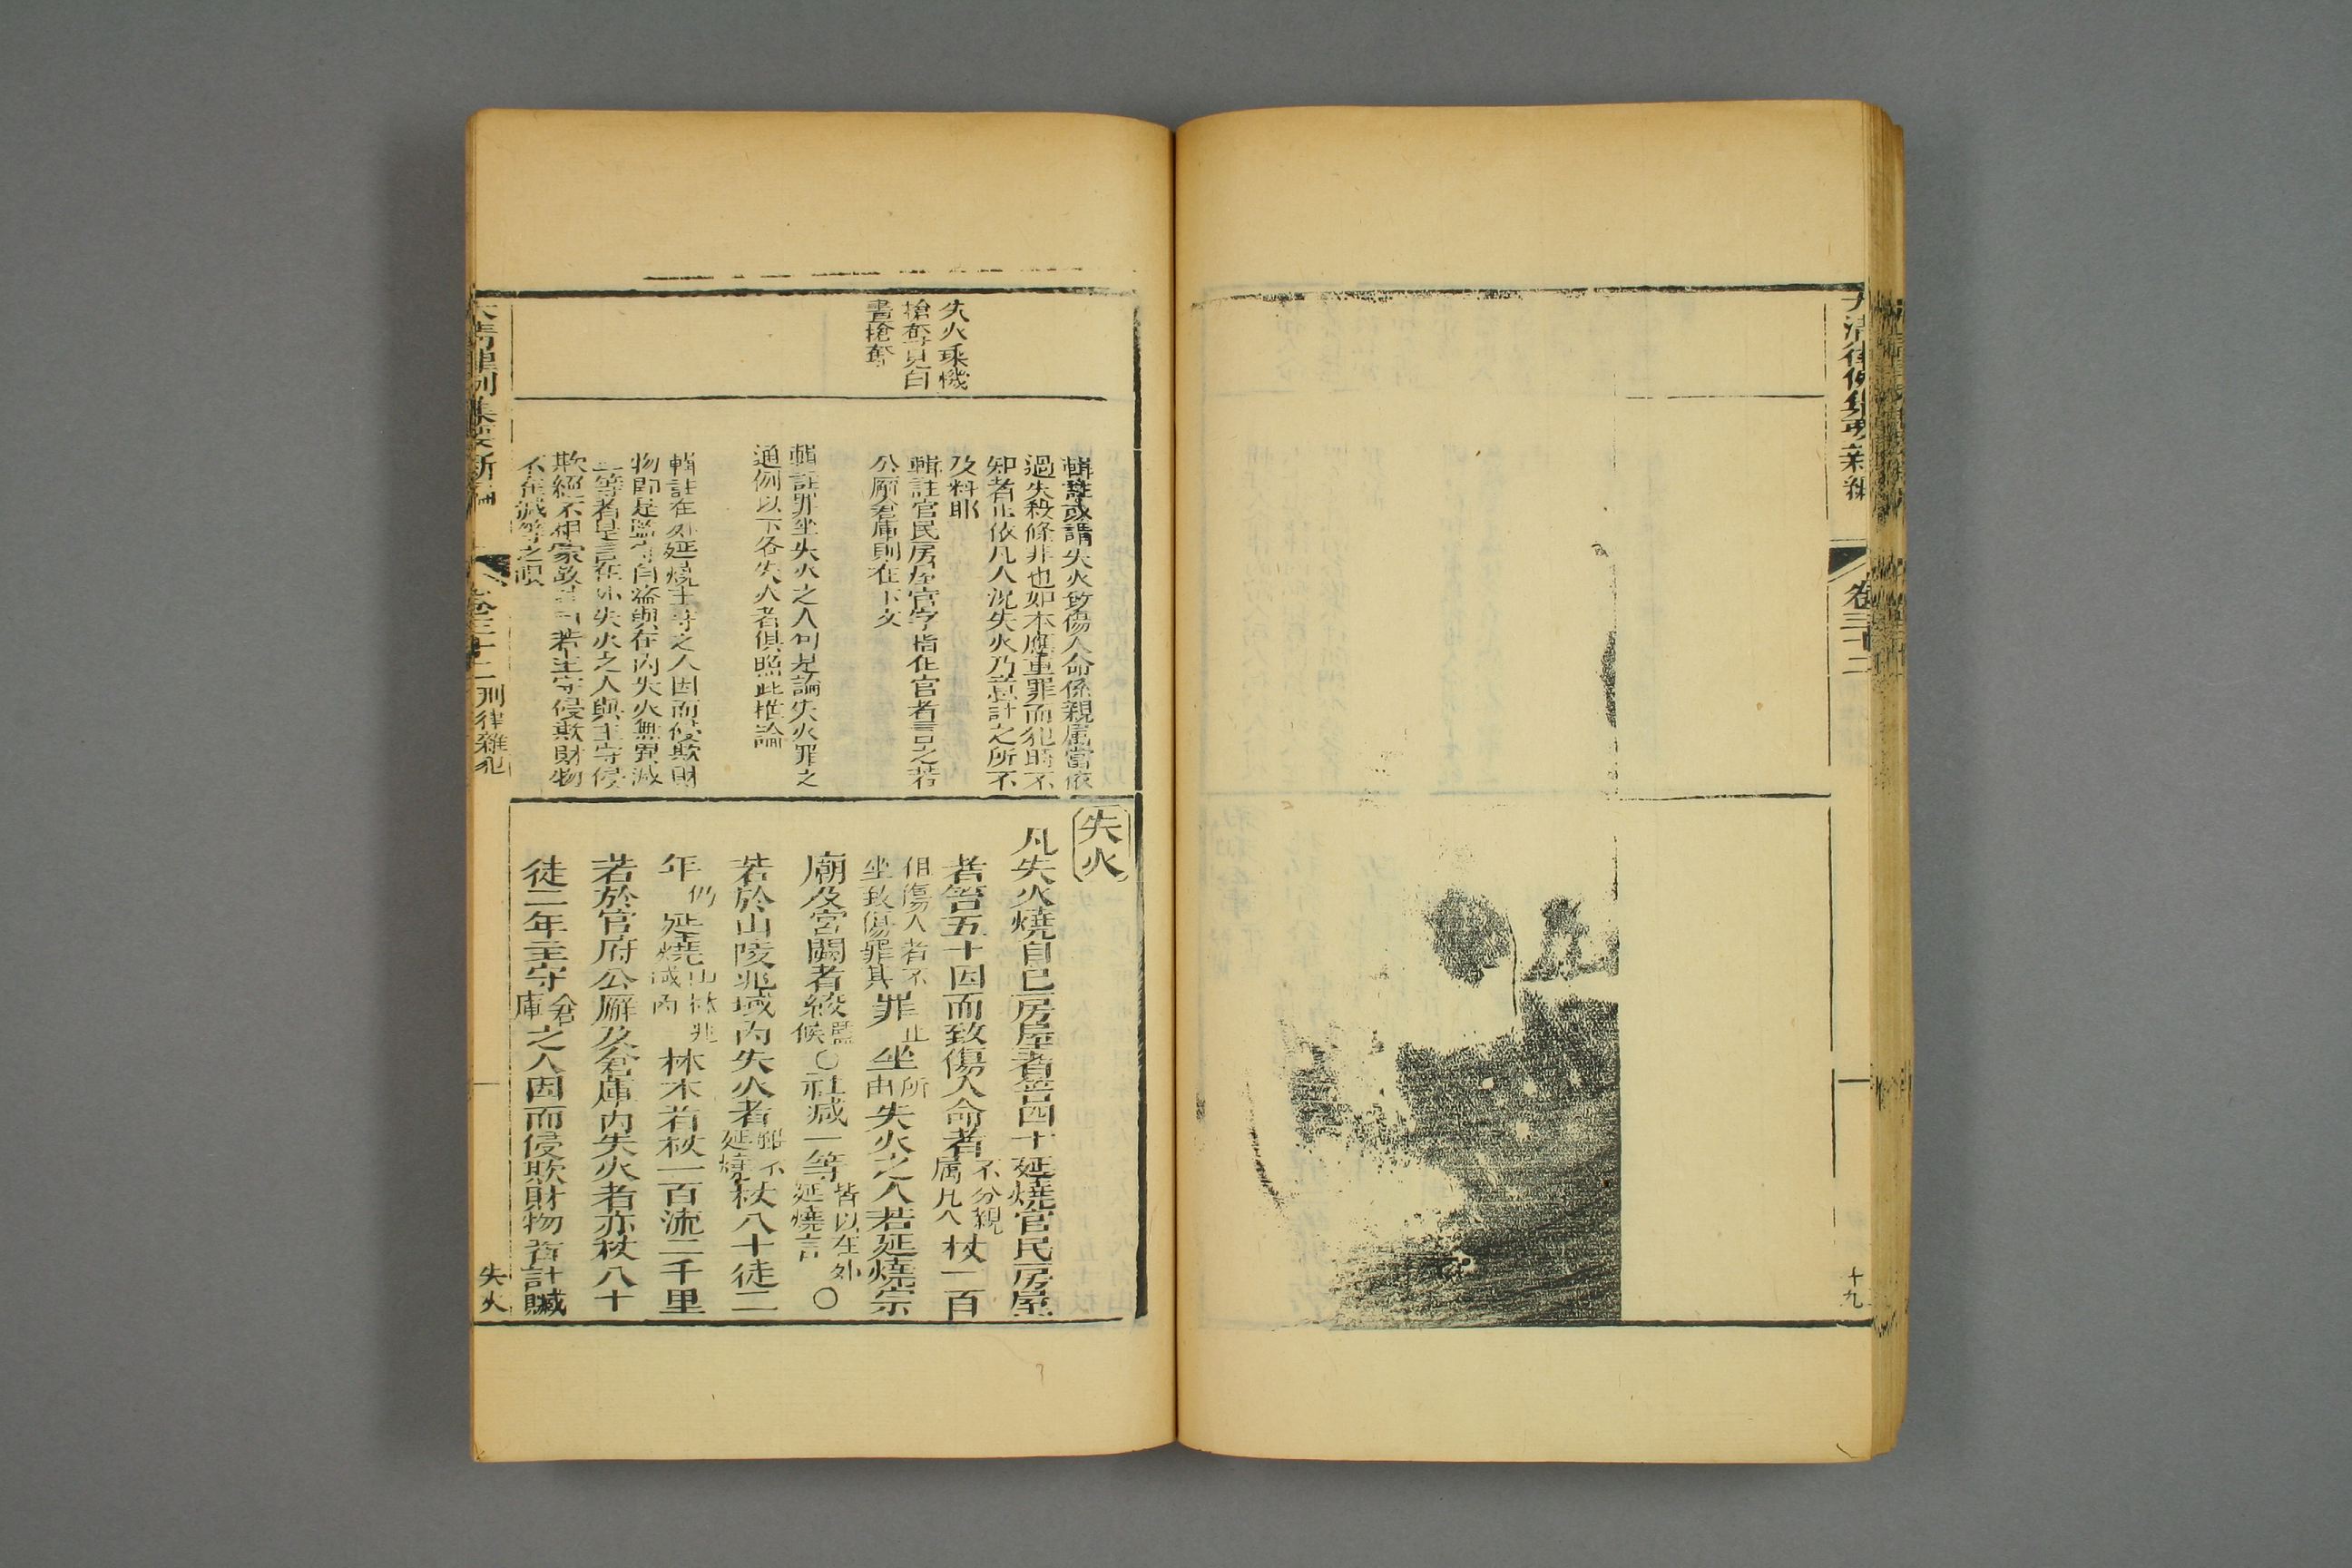 大清律例彙纂新編
卷三十二
十九
失火乘機
搶奪見白
晝搶奪
輯註或謂失火致傷人命係親屬當依
過失殺條非也如本應重罪而犯時不
知者止依凡人況失火乃意計之所不
及料耶
輯註官民房屋官字指住官者言之若
公廨倉庫則在下文
輯註罪坐失火之人句是論失火罪之
通例以下各失火者俱照此推論
輯註在外延燒主守之人因而侵欺財
物即是監守自盜與在內失火無異減
一等者是言在外失火之人與主守侵
欺絕不相蒙故 曰若主守侵欺財物
不在減等之限
失火
凡失火燒自己房屋者笞四十延燒官民房屋
者笞五十因而致傷人命者不分親屬凡人杖一百
但傷人者不坐致傷罪其罪止坐所由失火之人若延燒宗
廟及宮闕者絞監候○社減一等皆以在外延燒言○
若於山陵兆域內失火者雖不延燒杖八十徒二
年仍延燒山林兆域內林木者杖一百流二千里
若於官府公廨及倉庫內失火者亦杖八十
徒二年主守倉庫之人因而侵欺財物者計贓
刑律雜犯
失火